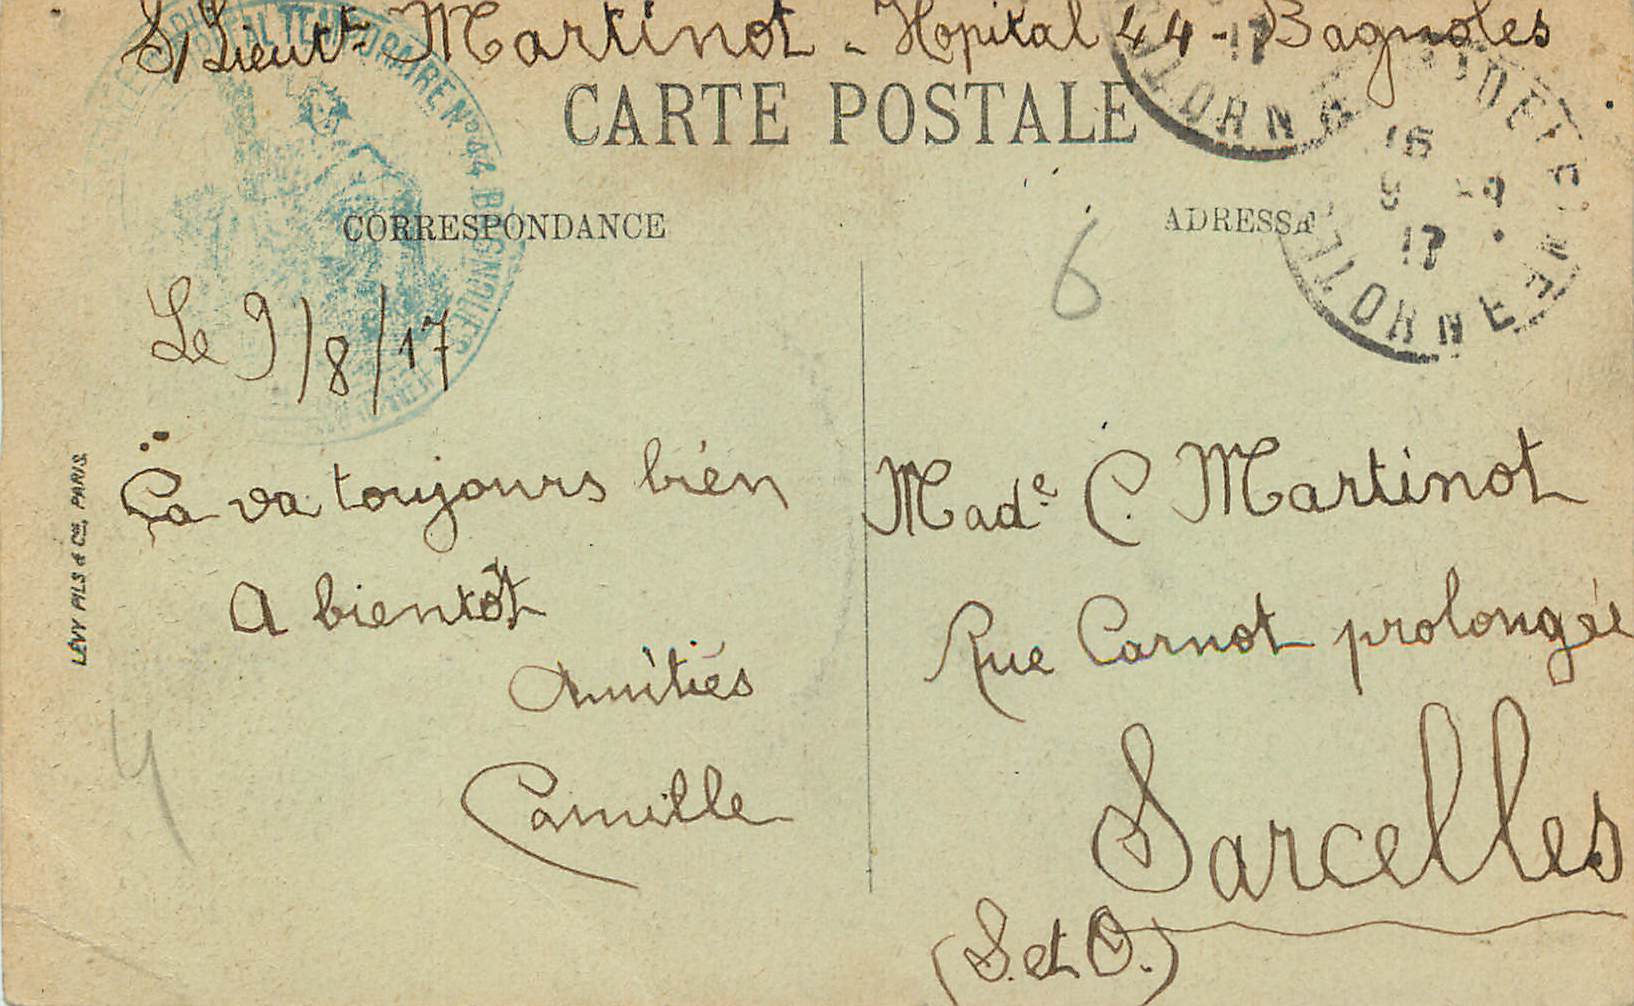 S/Lieutt Martinot - Hopital 44 - Bagnoles
CARTE POSTALE
CORRESPONDANCE
ADRESSE
HOPITAL TEMPORAIRE N° 44 BAGNOLES
ORNE
16
9 - 8
17
ORNE
17
6
Le 9/8/17
Ça va toujours bien
A bientôt
Amitiés
Camille
LÉVY FILS & Cie, PARIS.
Made C. Martinot
Rue Carnot prolongée
Sarcelles
(S. et O.)